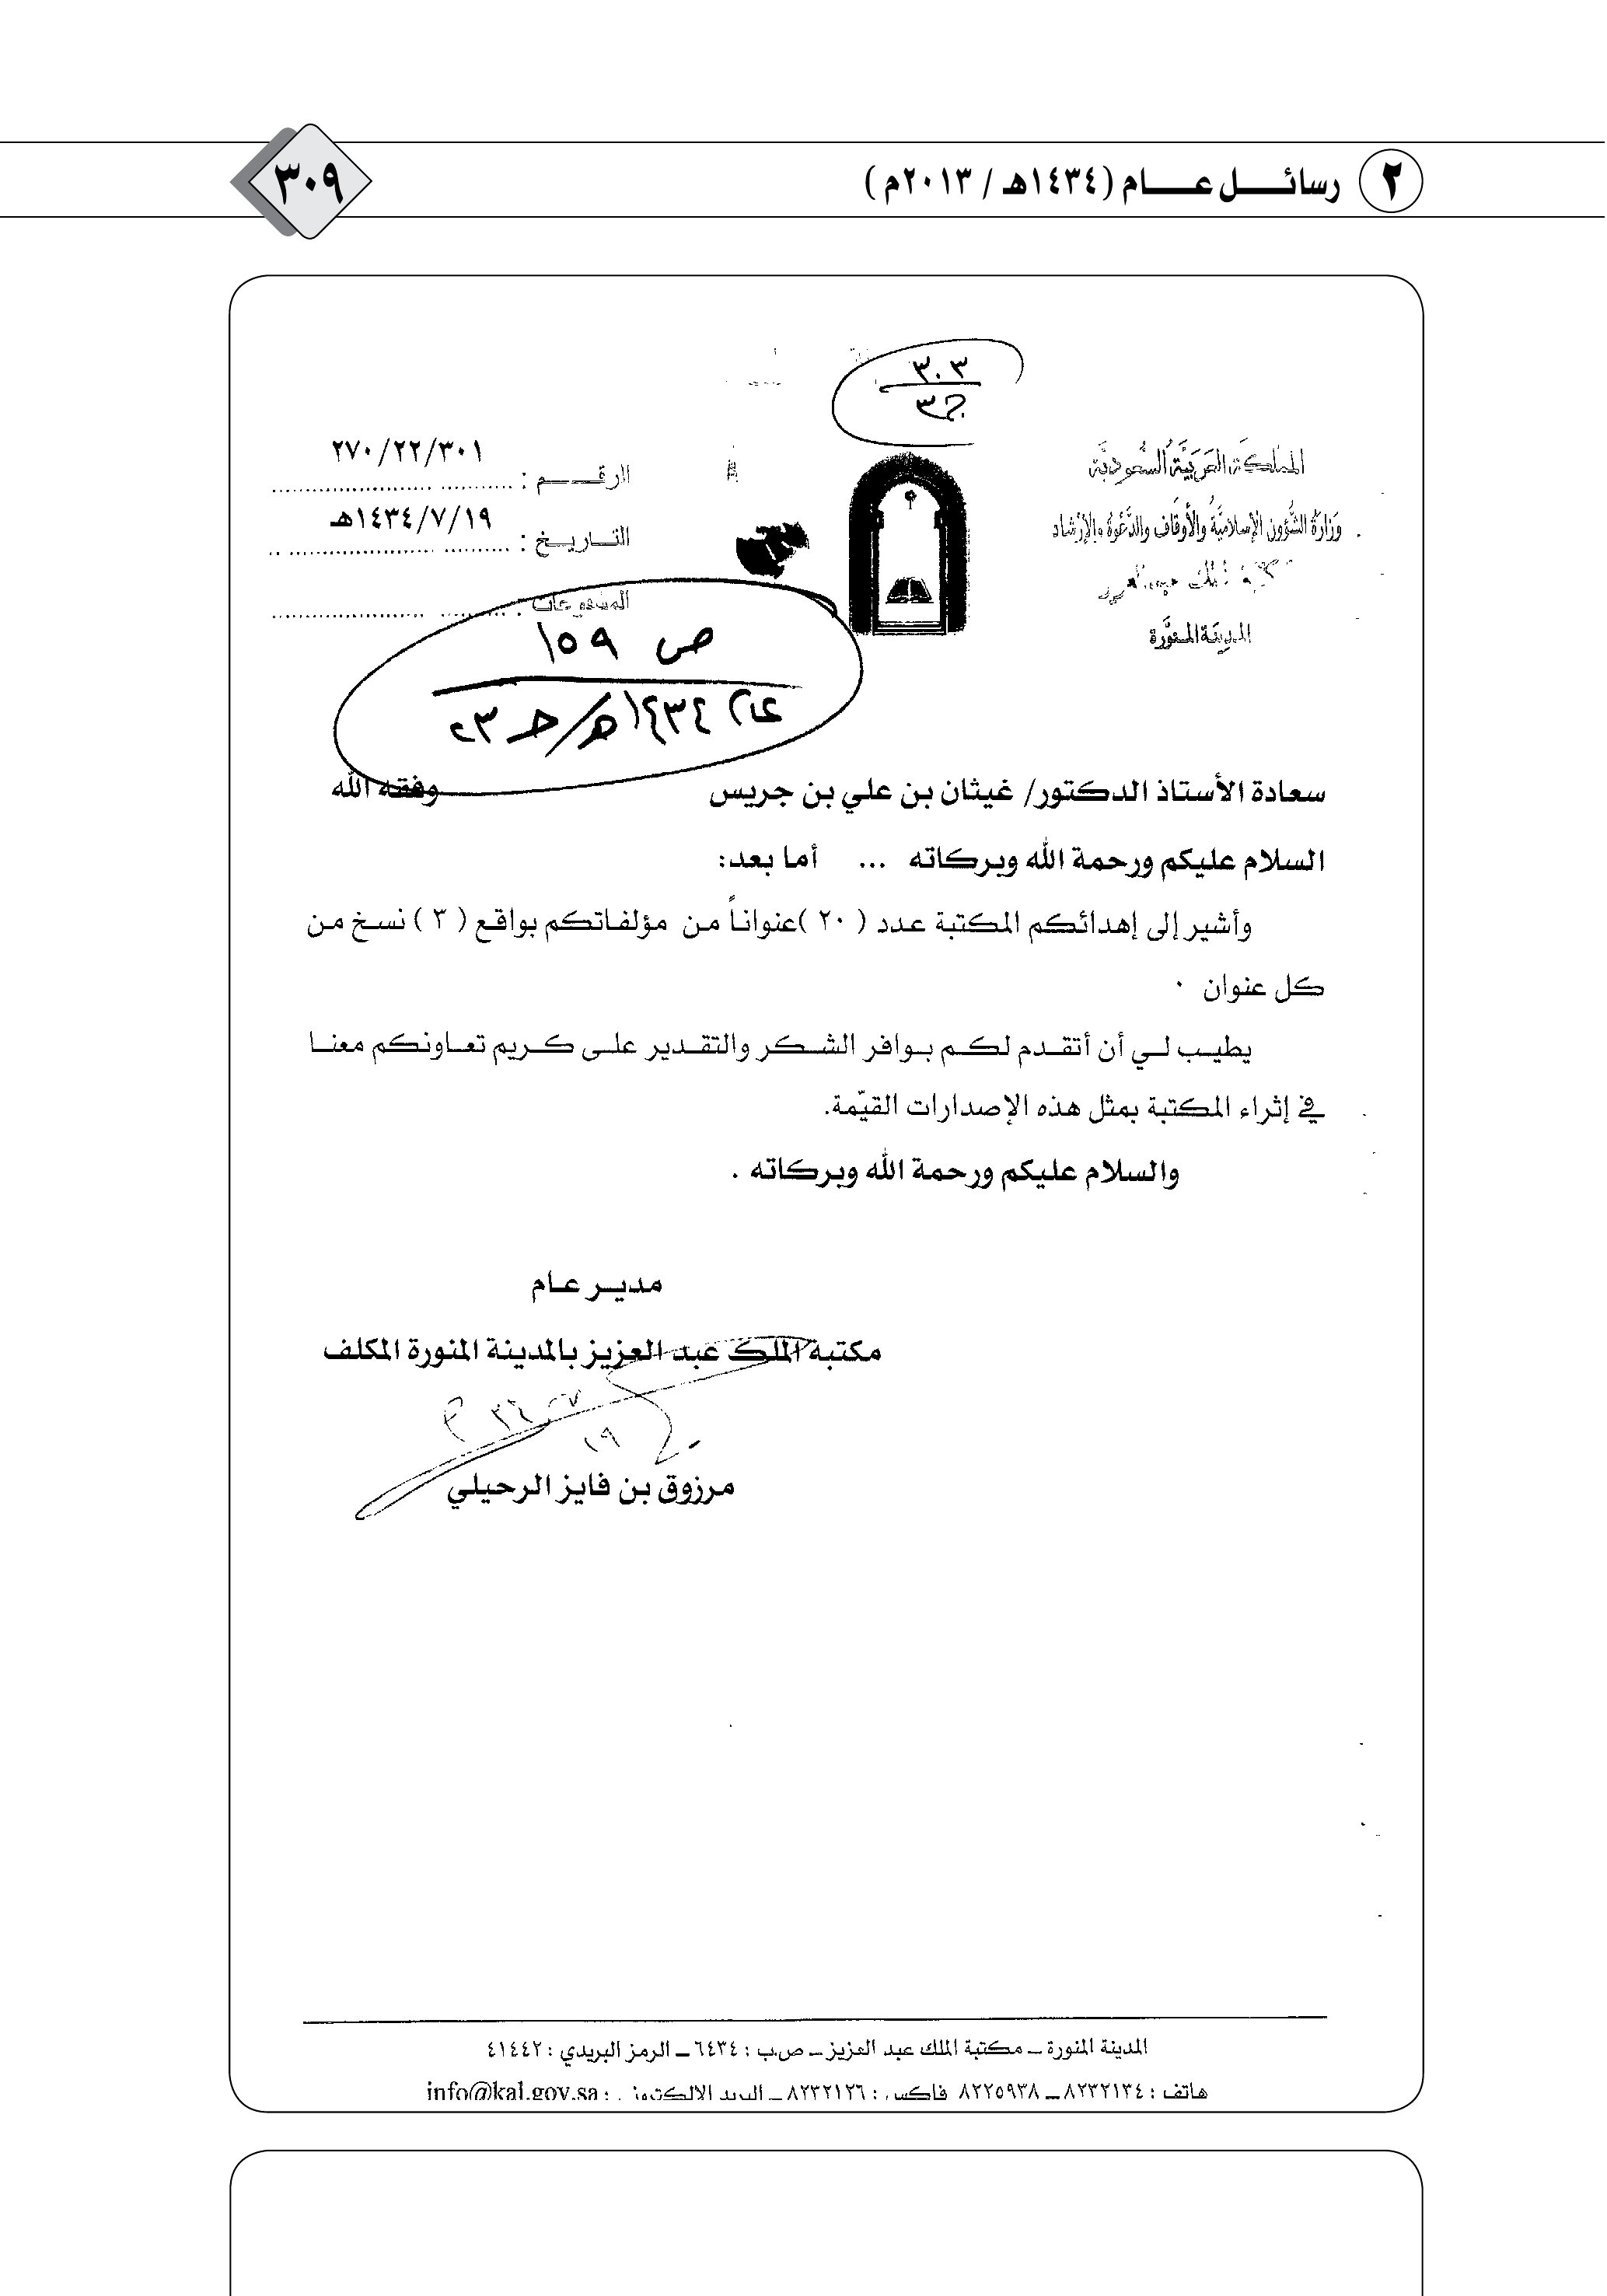 ٢ رسائل عام (١٤٣٤هـ / ٢٠١٣م)
٣٠٩
٣٠٣
ج٣
المملكة العربية السعودية
وزارة الشؤون الإسلامية والأوقاف والدعوة والإرشاد
المدينة المنورة
٢٧٠/٢٢/٣٠١
الرقم :
١٤٣٤/٧/١٩هـ
التاريخ :
المشفوعات :
ص ١٥٩
عام ١٤٣٤هـ/حـ
سعادة الأستاذ الدكتور/ غيثان بن علي بن جريس وفقه الله
السلام عليكم ورحمة الله وبركاته ... أما بعد:
وأشير إلى إهدائكم المكتبة عدد ( ٢٠ )عنواناً من مؤلفاتكم بواقع ( ٣ ) نسخ من
كل عنوان ٠
يطيب لي أن أتقدم لكم بوافر الشكر والتقدير على كريم تعاونكم معنا
في إثراء المكتبة بمثل هذه الإصدارات القيّمة.
والسلام عليكم ورحمة الله وبركاته .
مدير عام
مكتبة الملك عبد العزيز بالمدينة المنورة المكلف
مرزوق بن فايز الرحيلي
المدينة المنورة – مكتبة الملك عبد العزيز – ص.ب : ٦٤٣٤ – الرمز البريدي : ٤١٤٤٢
هاتف : ٨٢٣٢١٣٤ – ٨٢٢٥٩٣٨ فاكس : ٨٢٣٢١٢٦ – البريد الالكتروني : info@kal.gov.sa